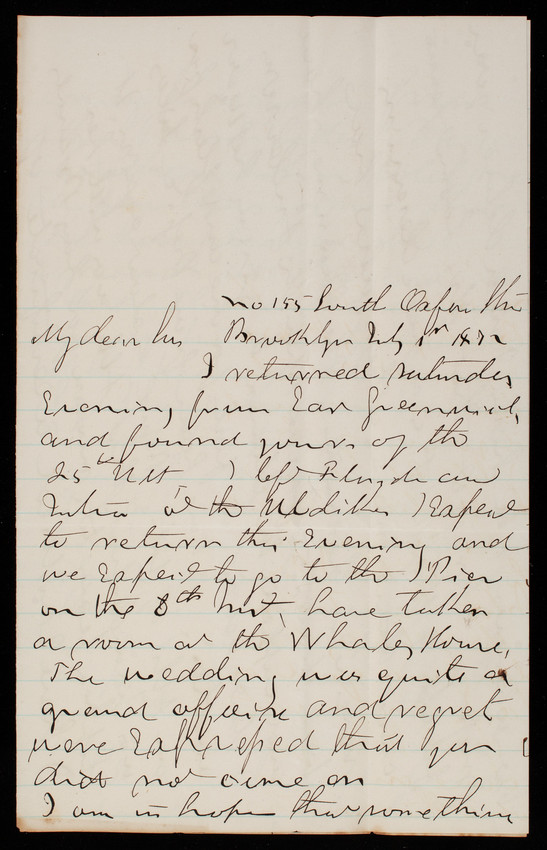 No 155 South Oxford St
My dear Brooklyn July 1st 1872
I returned Saturday
Evening from East Greenwich,
and found yours of the
25th Ult I left and
at the I Expect
to return this Evening and
we Expect to go to the Pier
on the 8th Inst, have taken
a room at the Whaley House,
The wedding was quite a
grand affair and regret
were Expressed that you
did not come on
I am in hopes that something